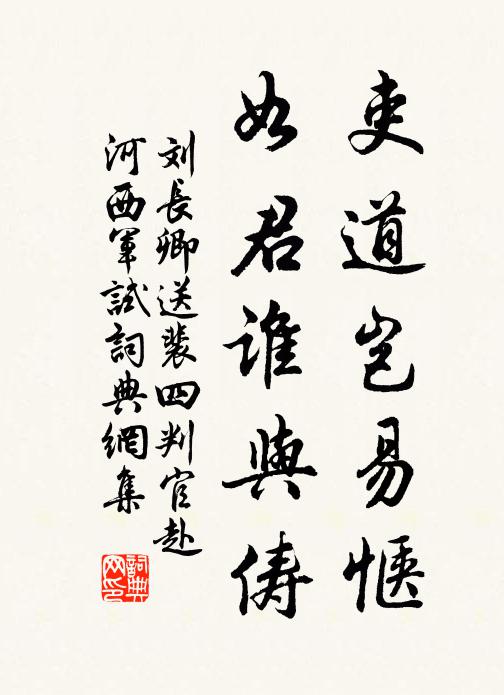 吏道豈易惬
如君誰與儔
刘長卿送裴四判官赴
河西軍試詞典網集
詞典网印